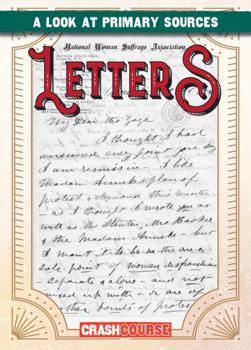 A LOOK AT PRIMARY SOURCES
National Woman Suffrage Association
LETTERS
My Dear Mrs Gage
I thought I had
answered every point you say
I am remiss in - I like
Madam Anneke's plan of
protest & demand this winter
- as I thought I wrote you as
well as Mrs Stanton, Mrs Hooker
& the Madam Anneke - but
I want it to be on the one
sole point of women disfranchised
- separate & alone - and not
mixed up with - or one of
other points of protest
CRASHCOURSE